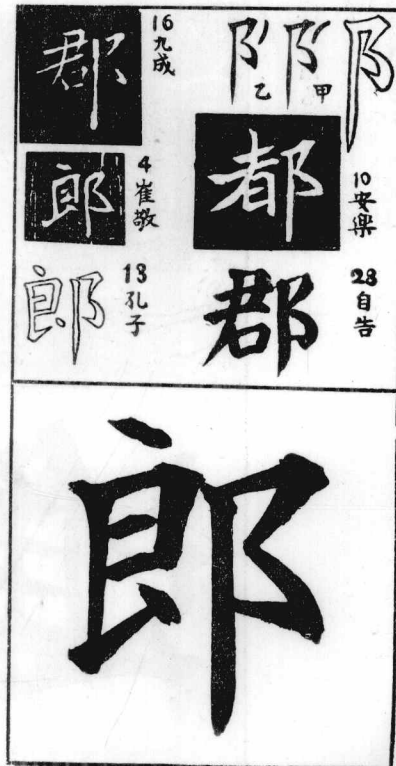 阝
阝甲
阝乙
都
10安樂
郡
28自告
郡
16九成
郎
4崔敬
郎
13孔子
郎